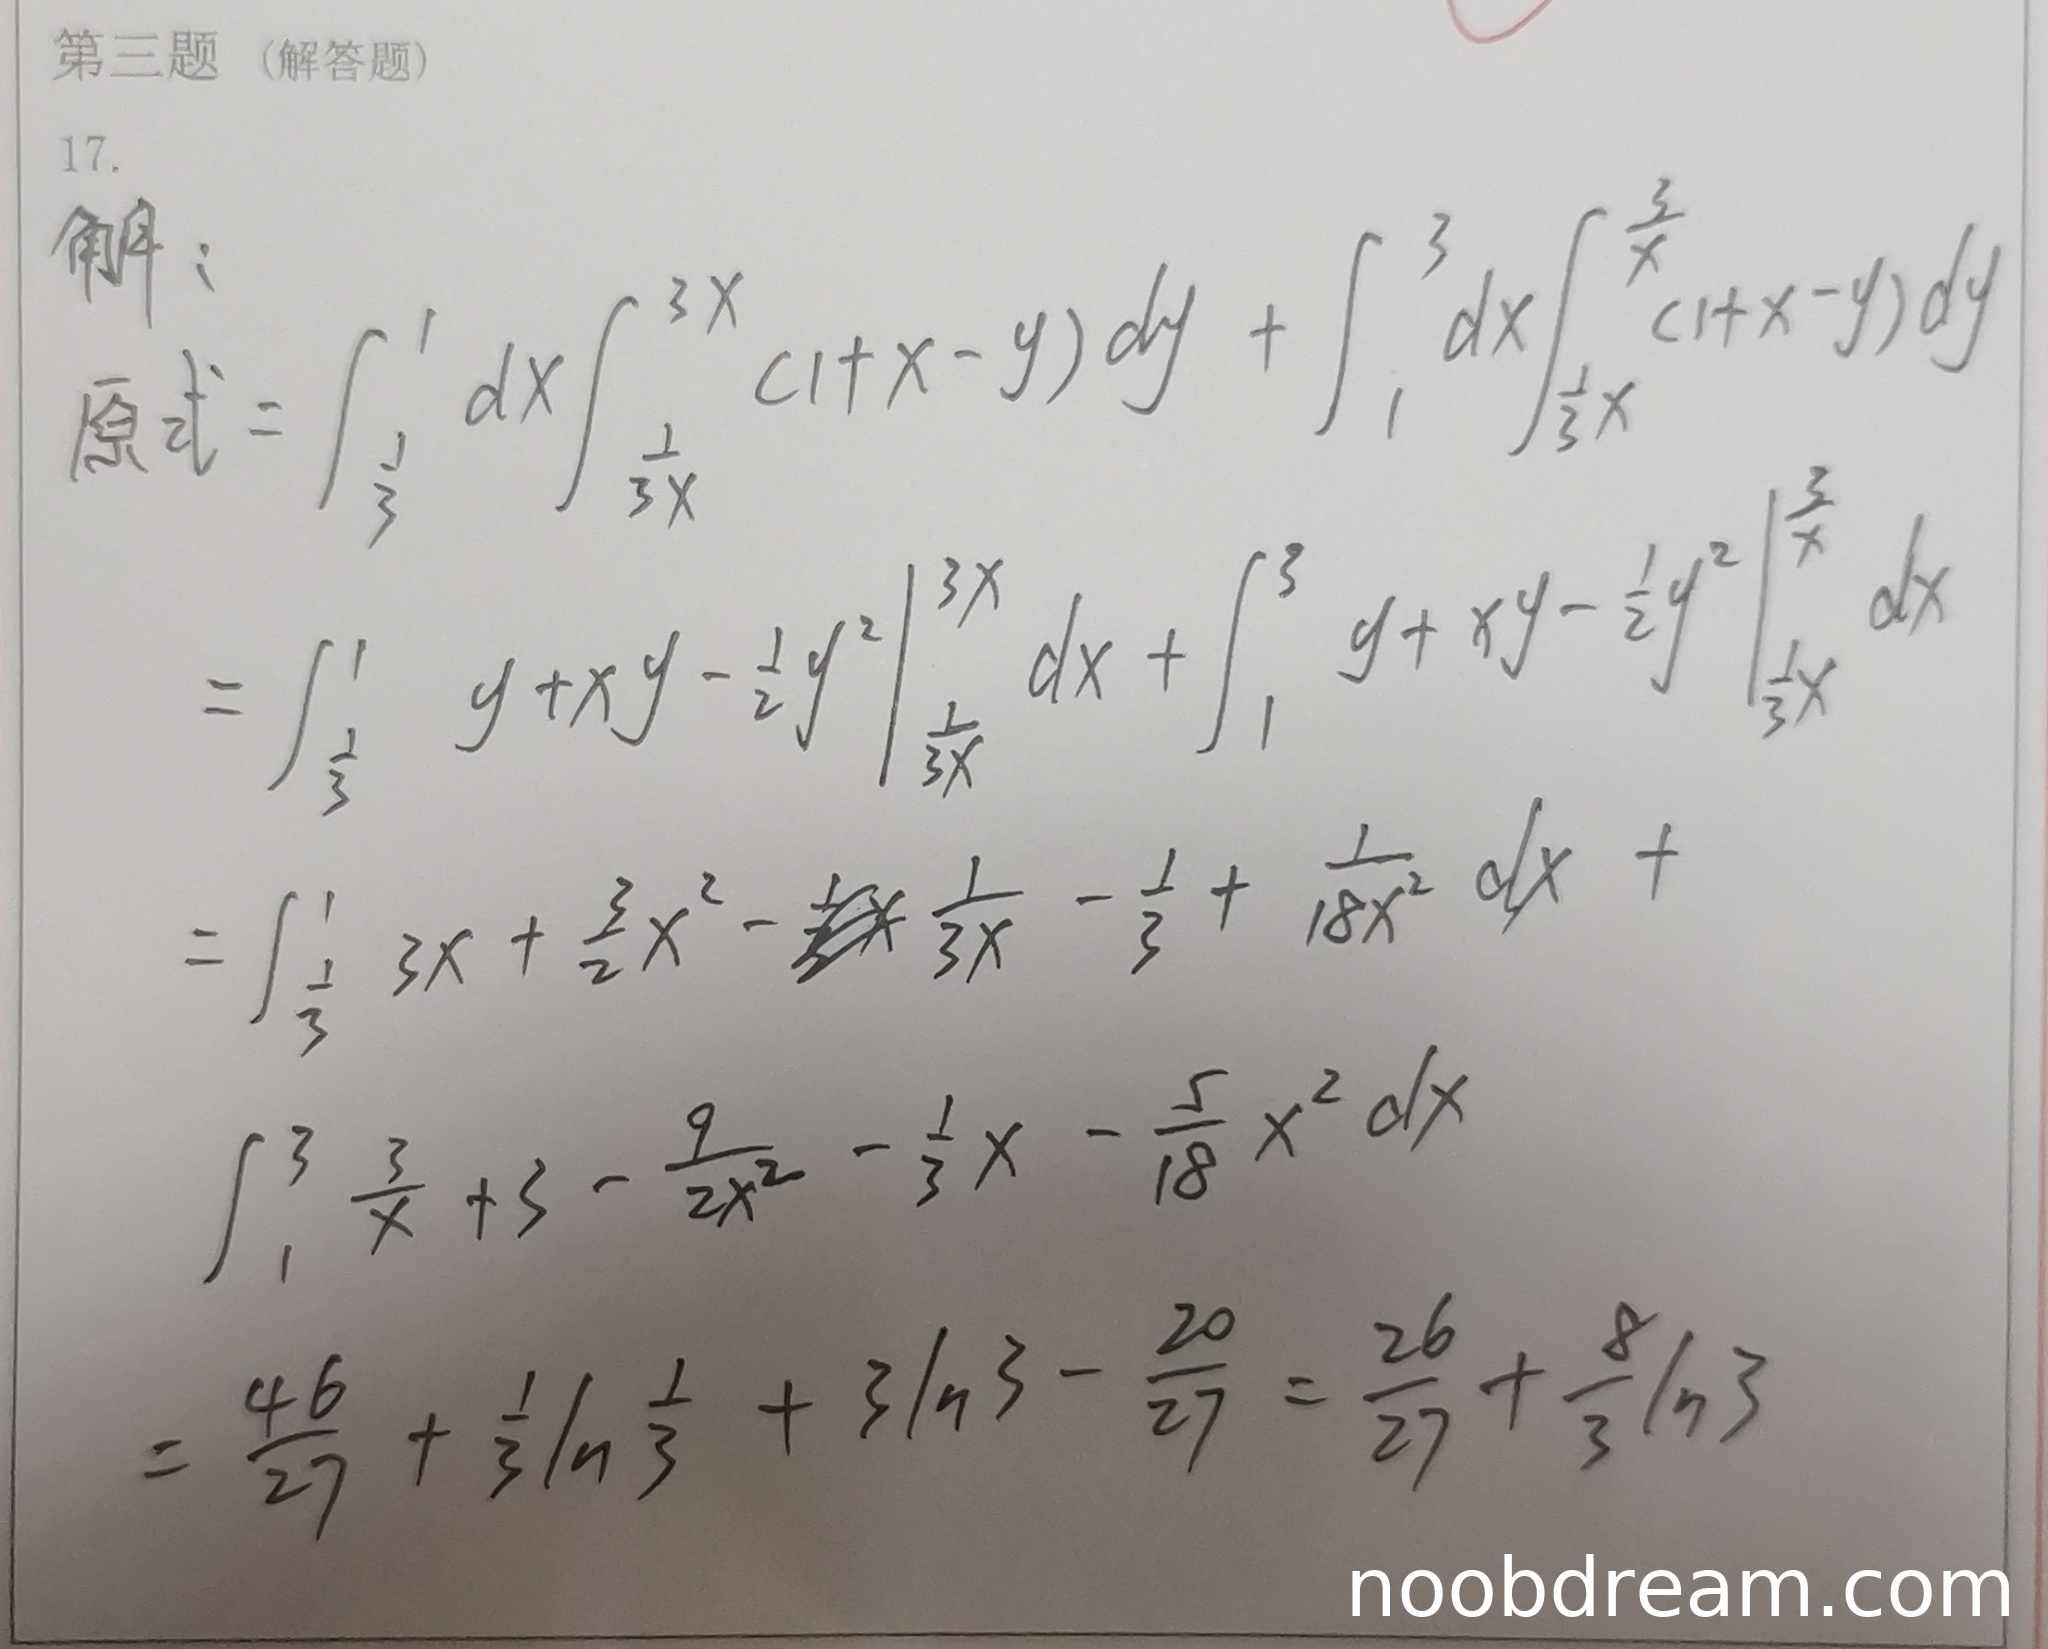 第三题 (解答题)
17.
解:
原式 = ∫_{1/3}^{1} dx ∫_{1/(3x)}^{3x} (1+x-y) dy + ∫_{1}^{3} dx ∫_{(1/3)x}^{3/x} (1+x-y) dy
= ∫_{1/3}^{1} y+xy-(1/2)y² |_{1/(3x)}^{3x} dx + ∫_{1}^{3} y+xy-(1/2)y² |_{(1/3)x}^{3/x} dx
= ∫_{1/3}^{1} 3x + (3/2)x² - 1/(3x) - 1/3 + 1/(18x²) dx +
∫_{1}^{3} 3/x + 3 - 9/(2x²) - (1/3)x - (5/18)x² dx
= 46/27 + (1/3)ln(1/3) + 3ln3 - 20/27 = 26/27 + (8/3)ln3
noobdream.com